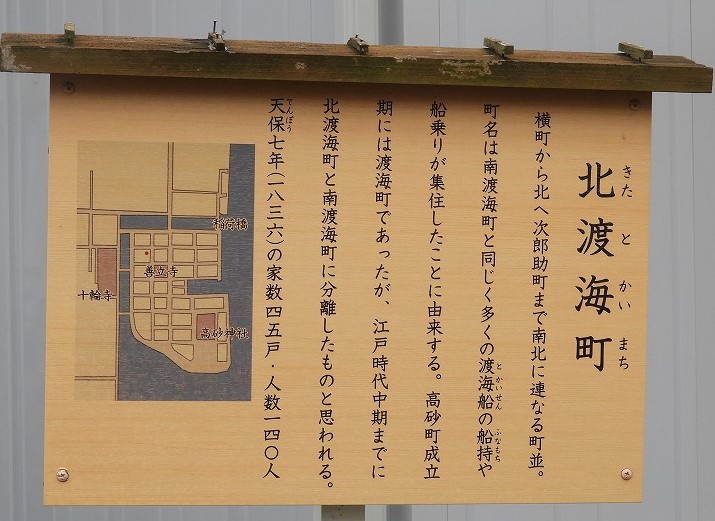 北渡海町
きた と かい まち
横町から北へ次郎助町まで南北に連なる町並。
町名は南渡海町と同じく多くの渡海船の船持や
とかいせん ふなもち
船乗りが集住したことに由来する。高砂町成立
期には渡海町であったが、江戸時代中期までに
北渡海町と南渡海町に分離したものと思われる。
天保七年(一八三六)の家数四五戸・人数一四〇人
てんぽう
稲荷橋
善立寺
十輪寺
高砂神社